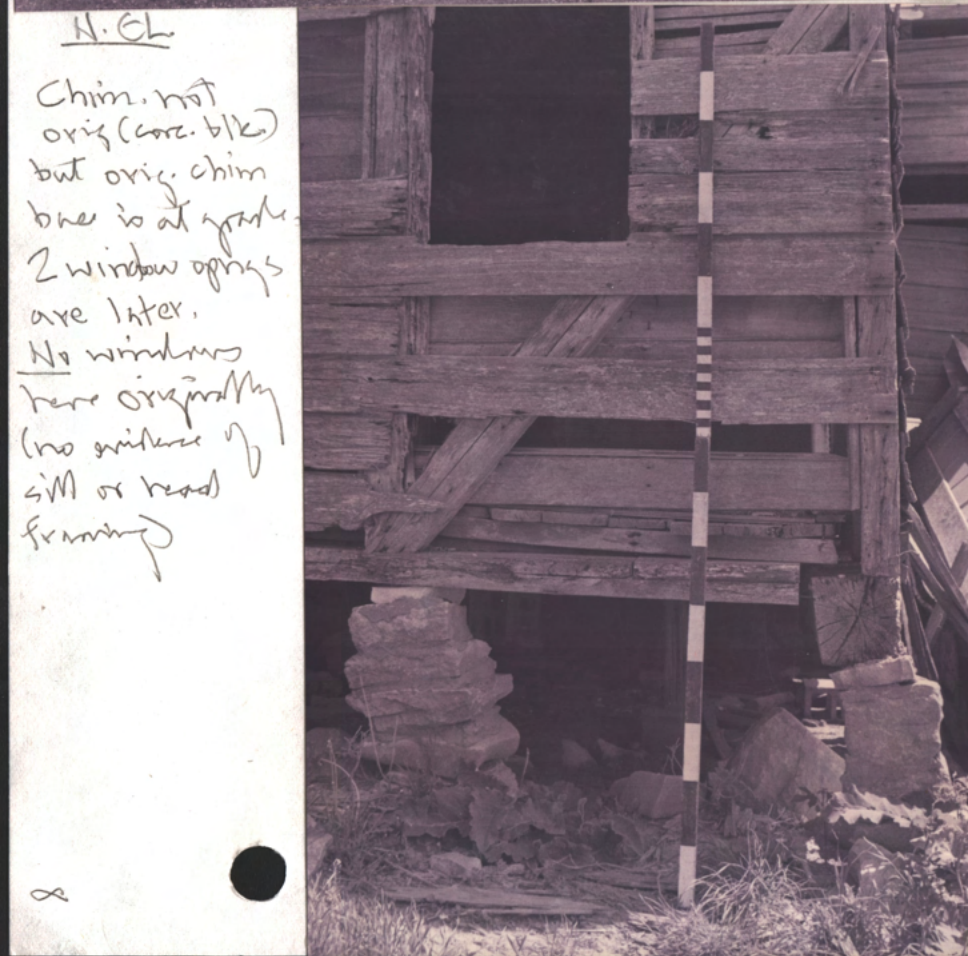 N. EL.
Chim. not
orig (conc. blk.)
but orig. chim
base is at grade.
2 window op'ngs
are later.
No windows
here originally
(no evidence of
sill or head
framing)